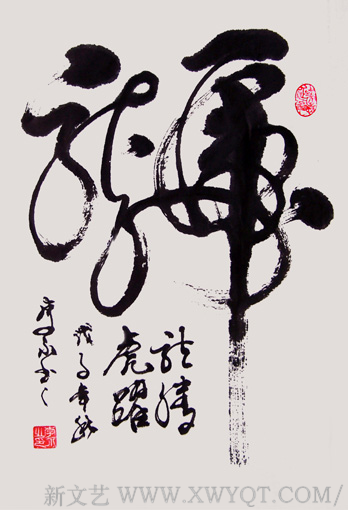 龍虎
龍騰
虎躍
戊子年秋
新文艺 WWW.XWYQT.COM/